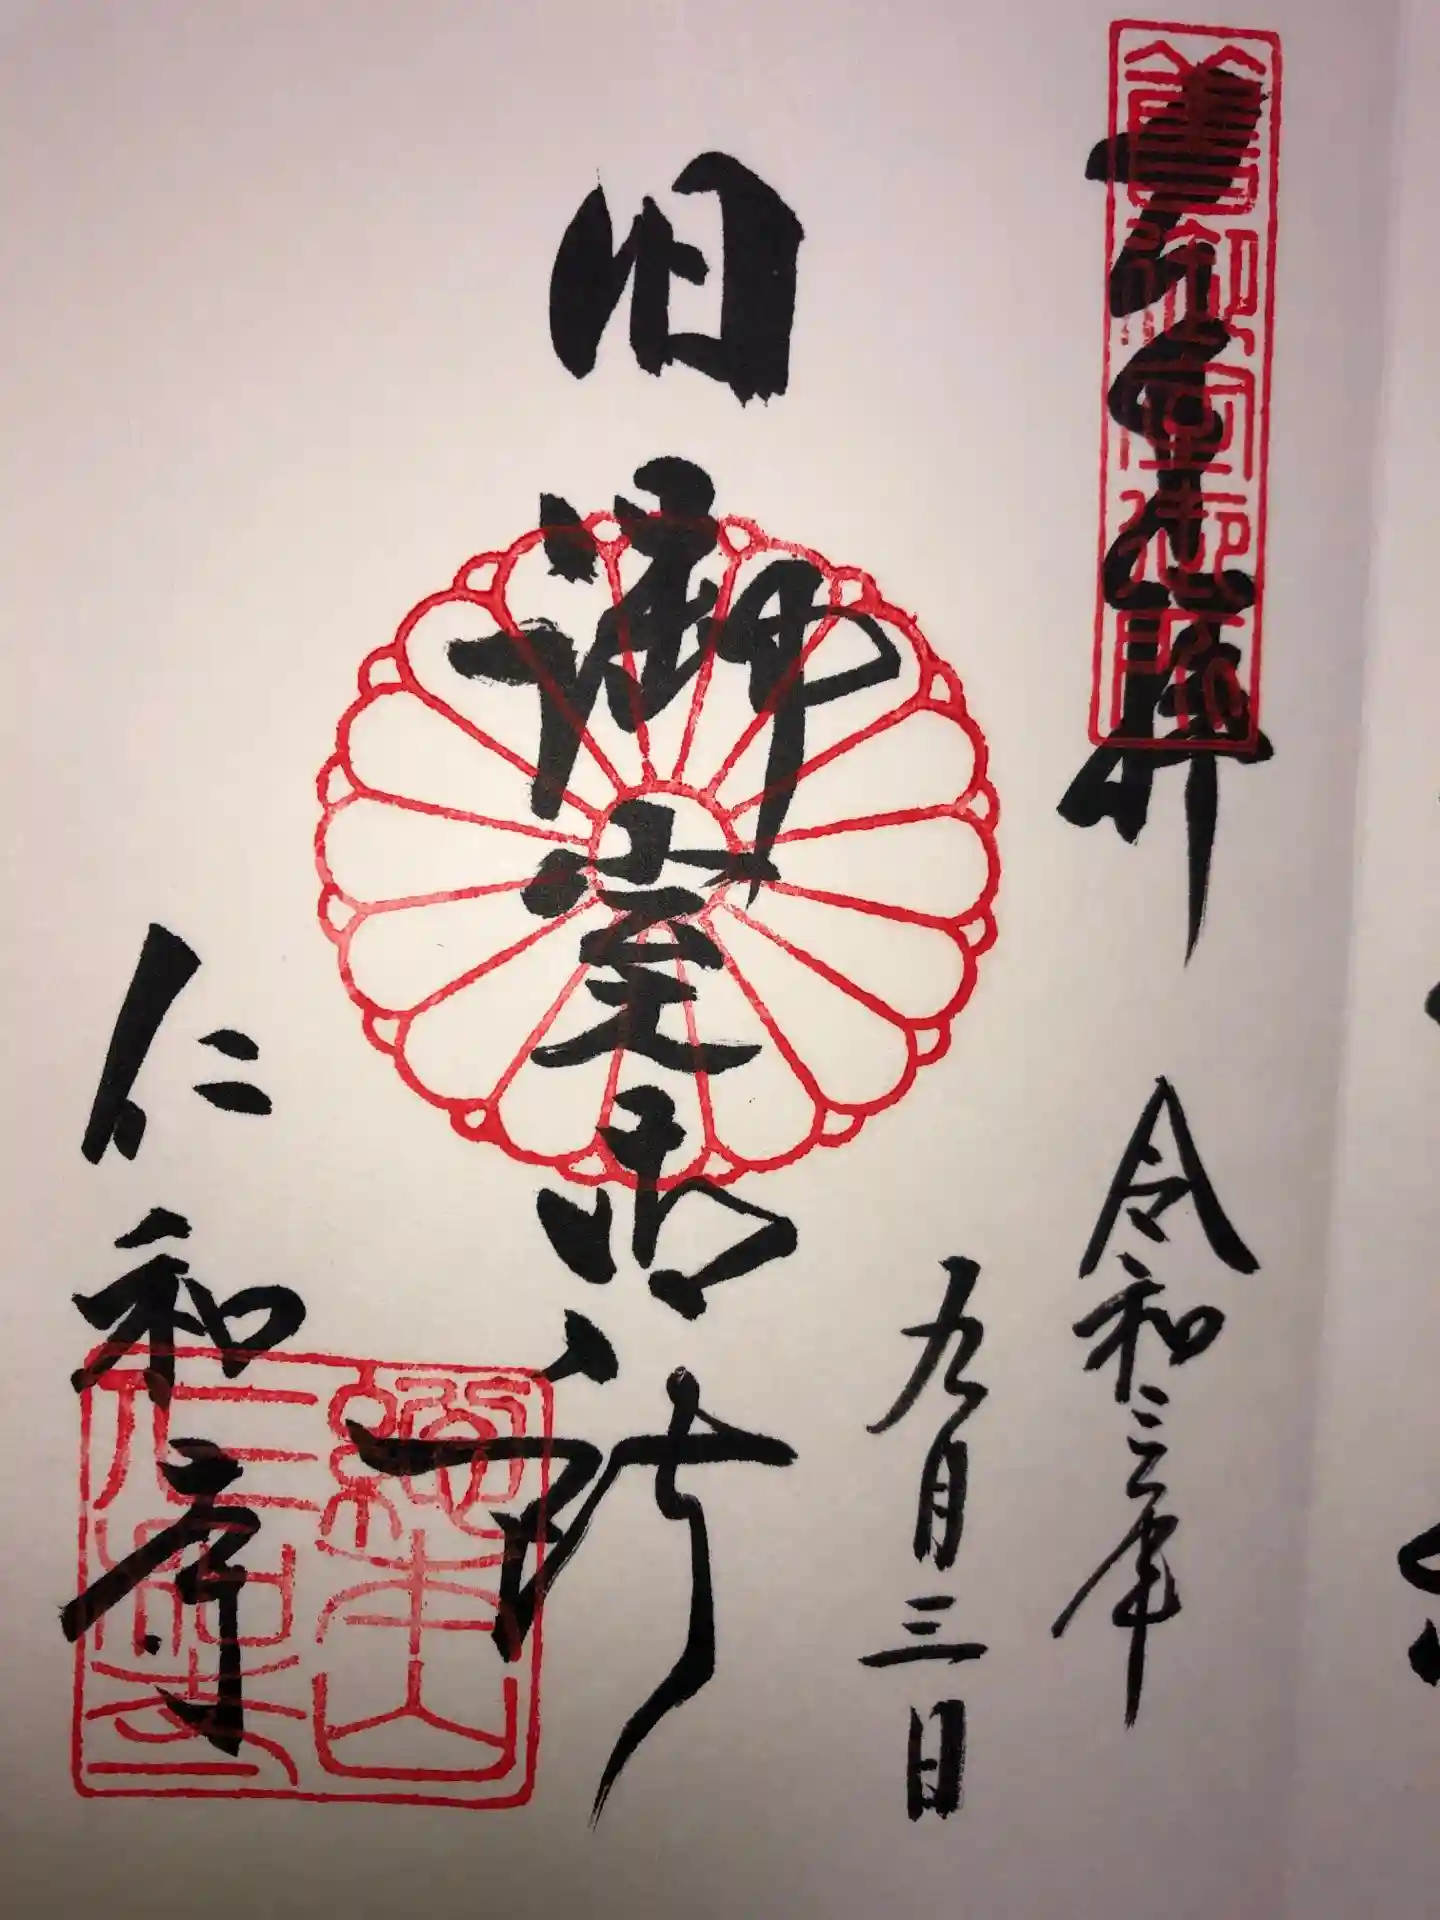 奉拝
舊御室御所
令和三年
九月三日
旧御室御所
仁和寺
總本山
仁和寺